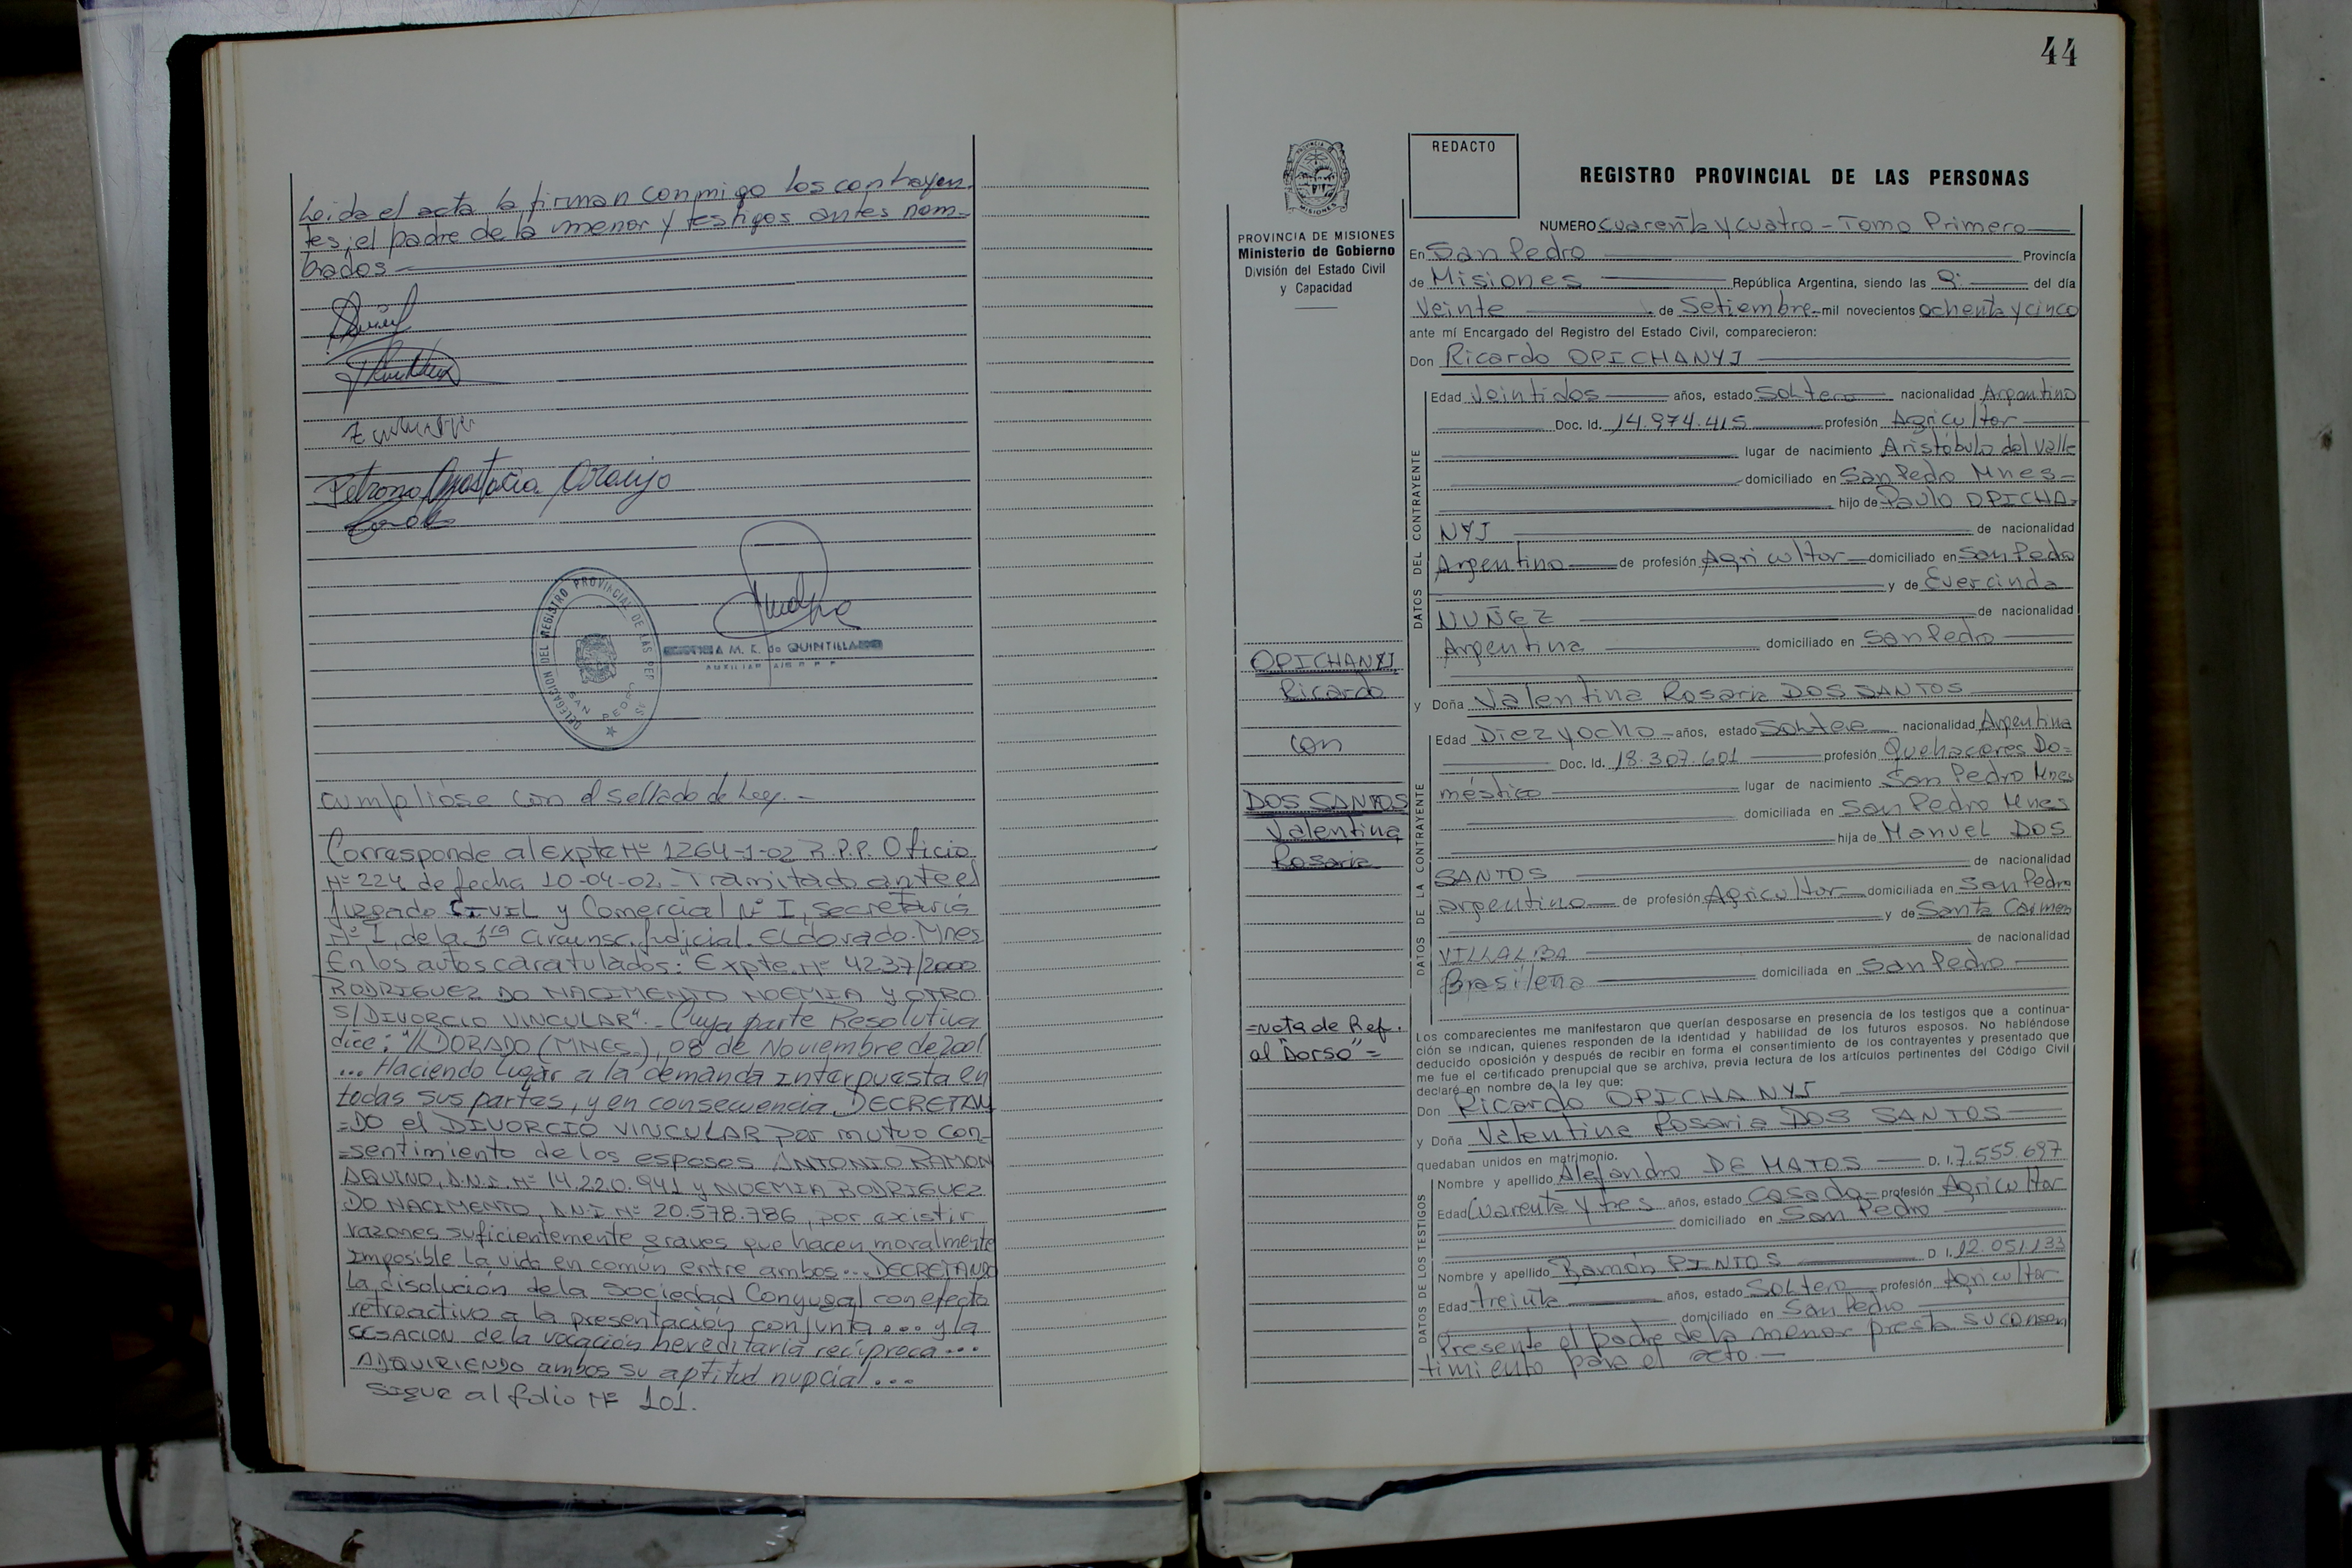 Leida el acta la firman conmigo los contrayen-
tes, el padre de la menor y testigos antes nom-
brados
Petrona Anastacia Araujo
DELEGACION DEL REGISTRO PROVINCIAL DE LAS PER
SAN PEDRO
A M. K. de QUINTILLA
AUXILIAR
cumplióse con el sellado de Ley.-
Corresponde al Expte Nº 1264-1-02 R.P.P. Oficio
Nº 224 de fecha 10-04-02- Tramitado ante el
Juzgado CIVIL y Comercial Nº I, secretaria
Nº I, de la 3ra Circunsc. Judicial. Eldorado. Mnes
En los autos caratulados: "Expte. Nº 4237/2000
RODRIGUEZ DO NACIMENTO NOEMIA Y OTRO
S/DIVORCIO VINCULAR".- Cuya parte Resolutiva
dice: "//DORADO (MNES.), 08 de Noviembre de 2001
... Haciendo lugar a la demanda interpuesta en
todas sus partes, y en consecuencia DECRETAN
=DO el DIVORCIO VINCULAR por mutuo con-
=sentimiento de los esposos ANTONIO RAMON
AQUINO, D.N.I. Nº 14.220.941 y NOEMIA RODRIGUEZ
DO NACIMENTO, D.N.I. Nº 20.578.786, por existir
razones suficientemente graves que hacen moralmente
imposible la vida en común entre ambos... DECRETANDO
La disolución de la Sociedad Conyugal con efecto
retroactivo a la presentación conjunta.... y la
CESACION de la vocación hereditaria recíproca...
ADQUIRIENDO ambos su aptitud nupcial...
Sigue al folio Nº 101.
44
PROVINCIA DE MISIONES
Ministerio de Gobierno
División del Estado Civil
y Capacidad
OPICHANYJ
Ricardo
con
DOS SANTOS
Valentina
Rosaria
=Nota de Ref.
al "Dorso"=
REDACTO
REGISTRO PROVINCIAL DE LAS PERSONAS
NUMERO Cuarenta y cuatro - Tomo Primero
En San Pedro Provincia
de Misiones República Argentina, siendo las 9: del día
Veinte de Setiembre mil novecientos ochenta y cinco
ante mí Encargado del Registro del Estado Civil, comparecieron:
Don Ricardo OPICHANYJ
DATOS DEL CONTRAYENTE
Edad Veintidos años, estado Soltero nacionalidad Argentino
Doc. Id. 14.974.415 profesión Agricultor
lugar de nacimiento Aristóbulo del Valle
domiciliado en San Pedro Mnes-
hijo de Paulo OPICHA=
NYJ de nacionalidad
Argentino de profesión Agricultor domiciliado en San Pedro
y de Evercinda
NUÑEZ de nacionalidad
Argentina domiciliado en San Pedro
y Doña Valentina Rosaria DOS SANTOS
DATOS DE LA CONTRAYENTE
Edad Diez y ocho años, estado Soltera nacionalidad Argentina
Doc. Id. 18.307.601 profesión Quehaceres Do=
méstico lugar de nacimiento San Pedro Mnes
domiciliada en San Pedro Mnes
hija de Manuel DOS
SANTOS de nacionalidad
argentino de profesión Agricultor domiciliada en San Pedro
y de Santa Carmen
VILLALBA de nacionalidad
Brasileña domiciliada en San Pedro
Los comparecientes me manifestaron que querían desposarse en presencia de los testigos que a continua-
ción se indican, quienes responden de la identidad y habilidad de los futuros esposos. No habiéndose
deducido oposición y después de recibir en forma el consentimiento de los contrayentes y presentado que
me fue el certificado prenupcial que se archiva, previa lectura de los artículos pertinentes del Código Civil
declaré en nombre de la ley que:
Don Ricardo OPICHANYJ
y Doña Valentina Rosaria DOS SANTOS
quedaban unidos en matrimonio.
DATOS DE LOS TESTIGOS
Nombre y apellido Alejandro DE MATOS D. I. 7.555.697
Edad Cuarenta y tres años, estado Casado profesión Agricultor
domiciliado en San Pedro
Nombre y apellido Ramón PINTOS D. I. 12.051.133
Edad treinta años, estado Soltero profesión Agricultor
domiciliado en San Pedro
Presente el padre de la menor presta su consen
timiento para el acto.-